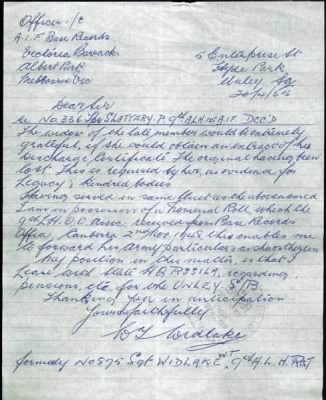 Officer i/c
A.I.F Base Records
Victoria Barracks
Albert Park
Melbourne Vic
5 Enterprise St
Hyde Park
Unley SA
Dear Sir
re No 336 Tpr SLATTERY. P. 9th A.L.H.R. A.I.F DCC'D
The widow of the late member would be extremely
grateful, if she could obtain an extract of his
Discharge Certificate. The original having been
lost. This is required by her, as evidence for
Legacy & Kindred bodies
Having served in same Unit as the abovenamed
I am in possession of a Nominal Roll which the
9th L.H. O.C. Assoc. received from Base Records
Office, Canberra 2nd Nov. 1948, this enables me
to forward his Army particulars as shown therein
My position in this matter, is that I
regarding
pensions, etc. for the UNLEY. S/B.
Thanking You in anticipation
Yours faithfully
W T Widlake
formerly No 575 Sgt WIDLAKE W.T. 9th A.L.H. RGT